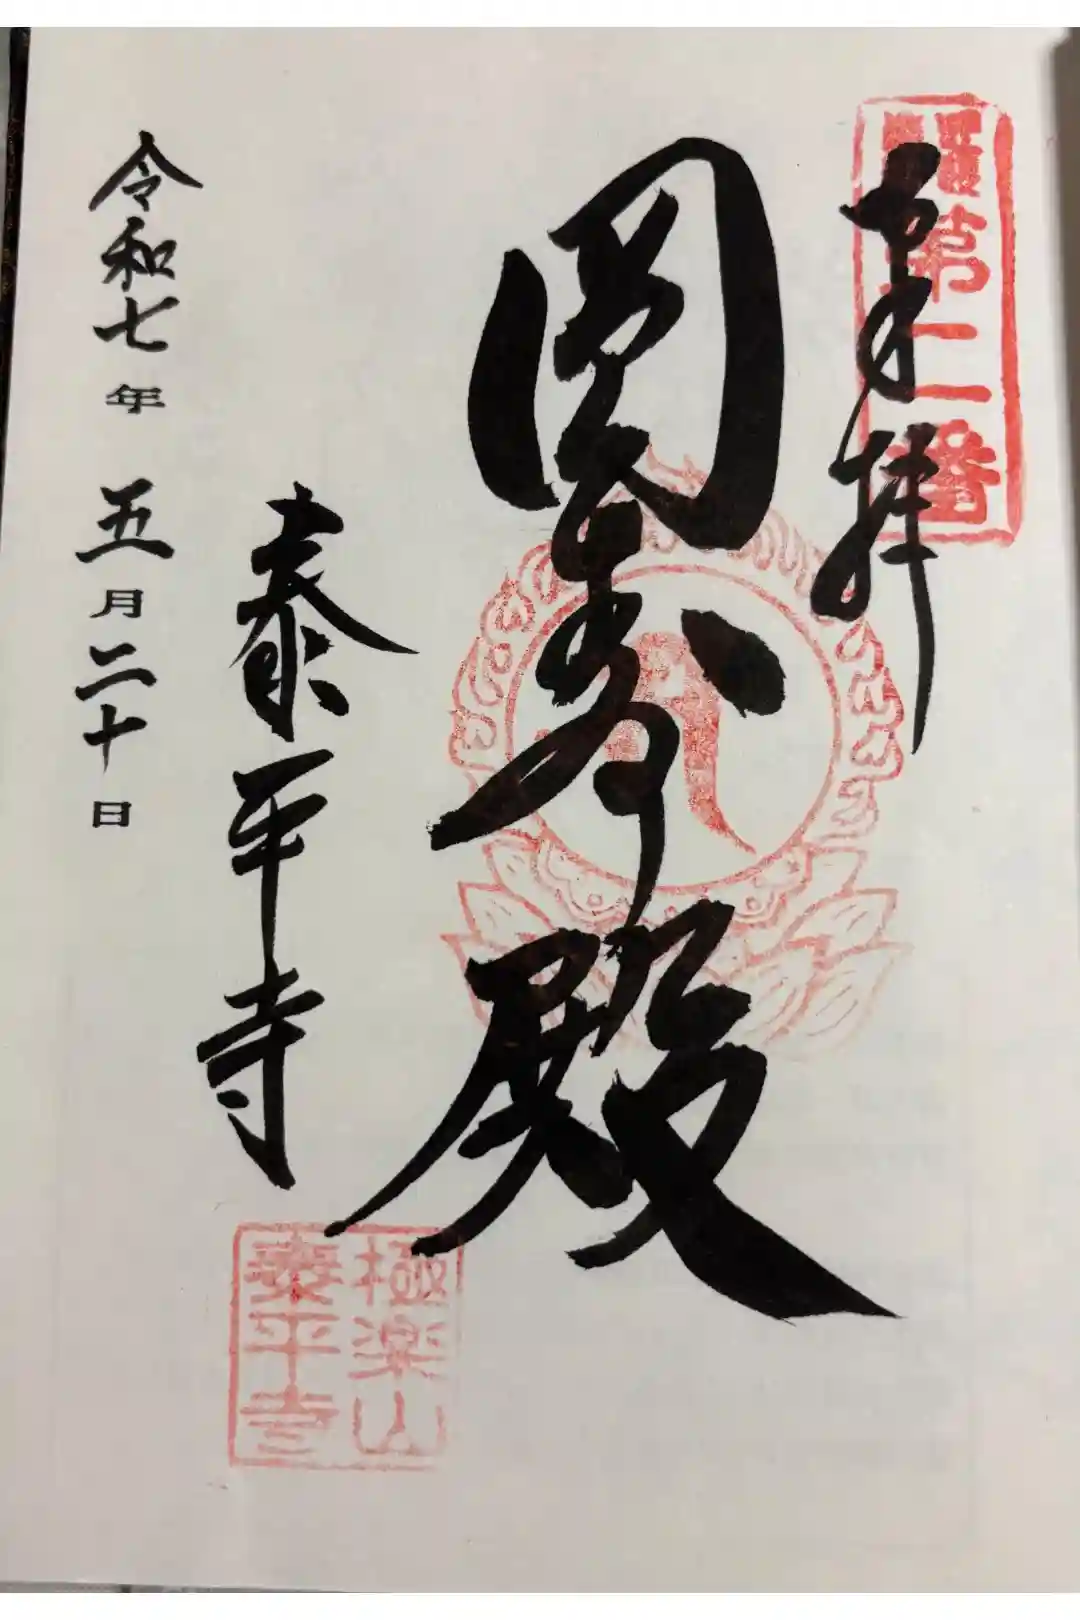 第二番
奉拝
殿
泰平寺
令和七年 五月二十日
極楽山
泰平寺